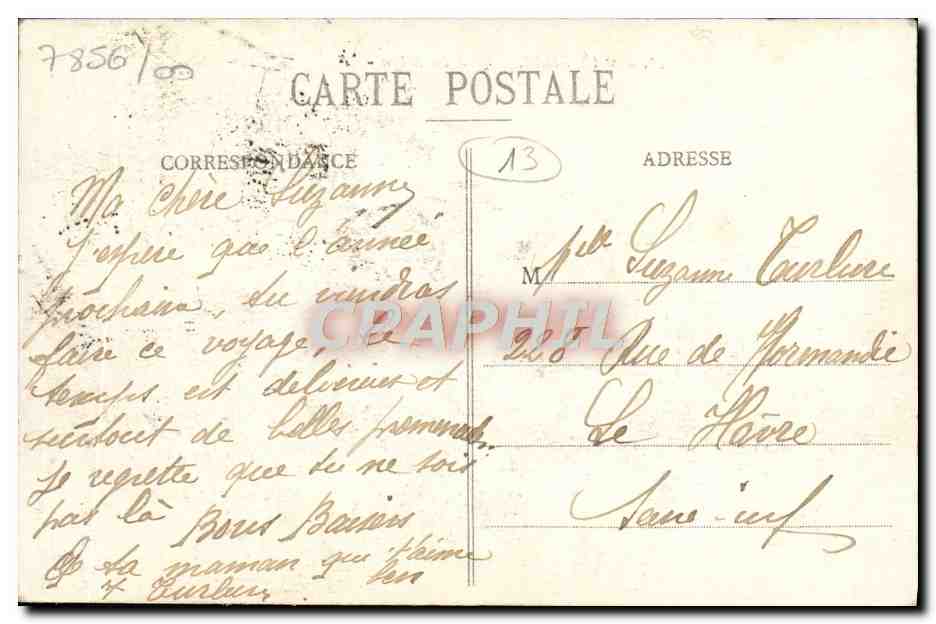 7856/00
CARTE POSTALE
CORRESPONDANCE
13
ADRESSE
Ma chère Suzanne
J'espère que l'année
prochaine, tu viendras
faire ce voyage, le
temps est délicieux et
surtout de belles promenades.
Je regrette que tu ne sois
pas là Bons Baisers
de ta maman qui t'aime
bien
Turlure
M Mlle Suzanne Turlure
228 Rue de Normandie
Le Hâvre
Seine-inf
CPAPHIL